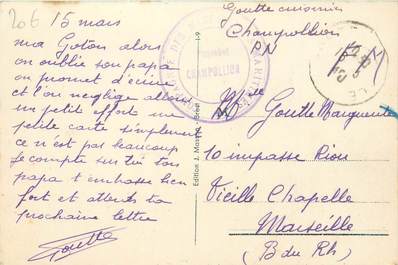 206
15 mars
ma Goton alors
on oublie son papa
on promet d'écrire
et l'on neglige allons
un petit effort une
petite carte simplement
ce n'est pas beaucoup
Je compte sur toi ton
papa t embrasse bien
fort et attends ta
prochaine lettre
Goutte
CHAMPOLLION
Edition J. Brest
Goutte cuisinier
Champollion
PN
Melle
Goutte Marguerite
10 impasse Rion
Vieille Chapelle
Marseille
(B du Rh)